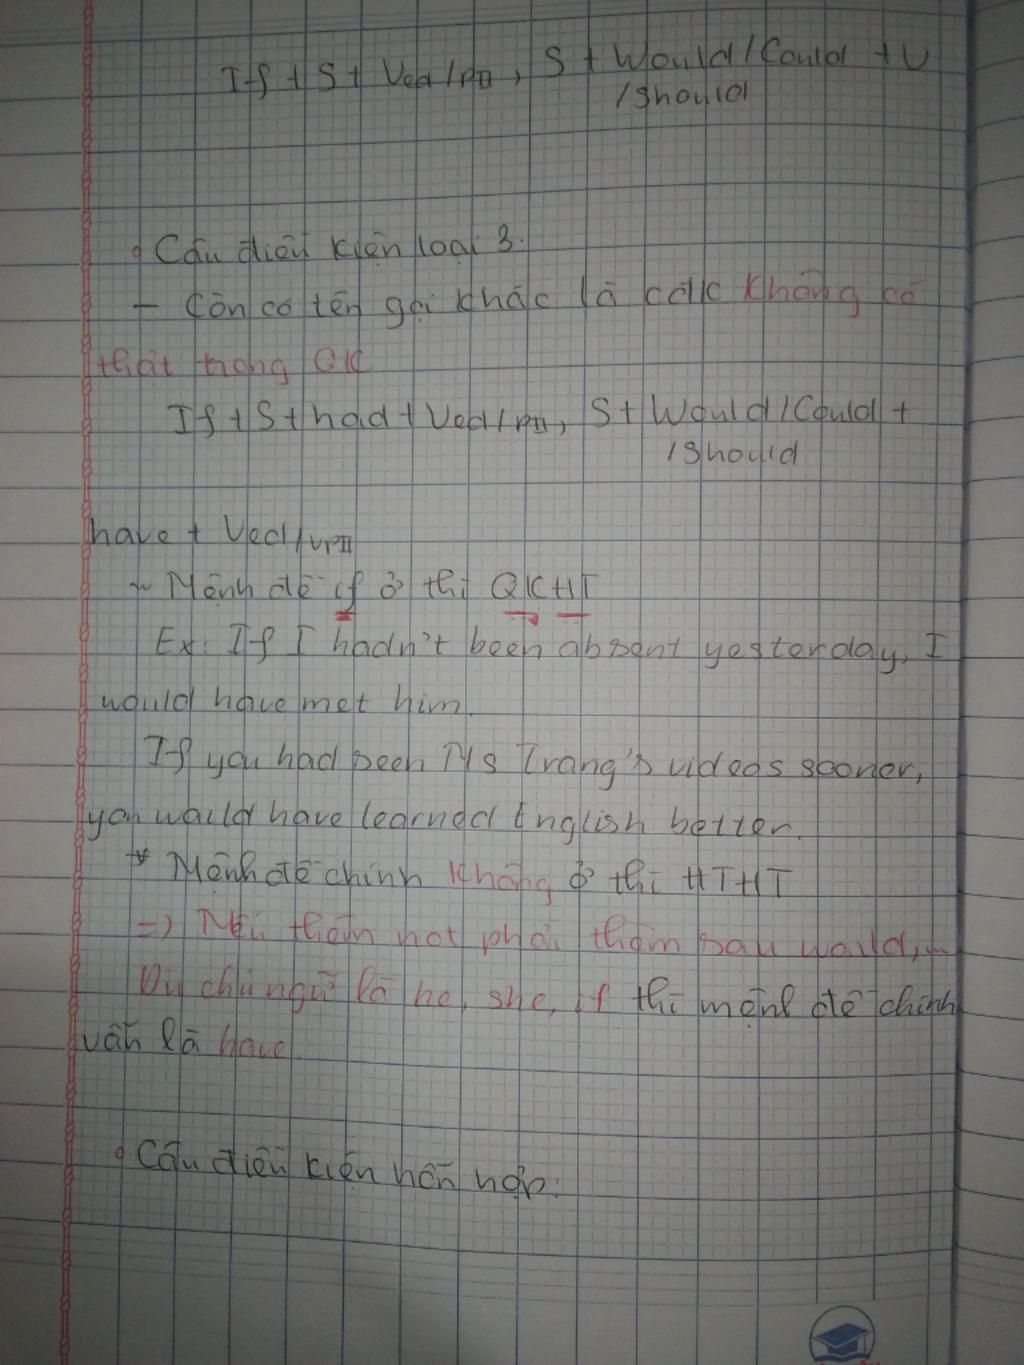 If + S + Ved/PII, S + Would/Could + V
/Should
Câu điều kiện loại 3:
- Còn có tên gọi khác là câu đk không có
thật trong QK
If + S + had + Ved/PII, S + Would/Could +
/Should
have + Ved/VPII
~ Mệnh đề if ở thì QKHT
Ex: If I hadn't been absent yesterday, I
would have met him.
If you had seen Ms Trang's videos sooner,
you would have learned English better.
* Mệnh đề chính không ở thì HTHT
=> Nếu thêm not phải thêm sau would,...
Dù chủ ngữ là he, she, it thì mệnh đề chính
vẫn là have
Câu điều kiện hỗn hợp: